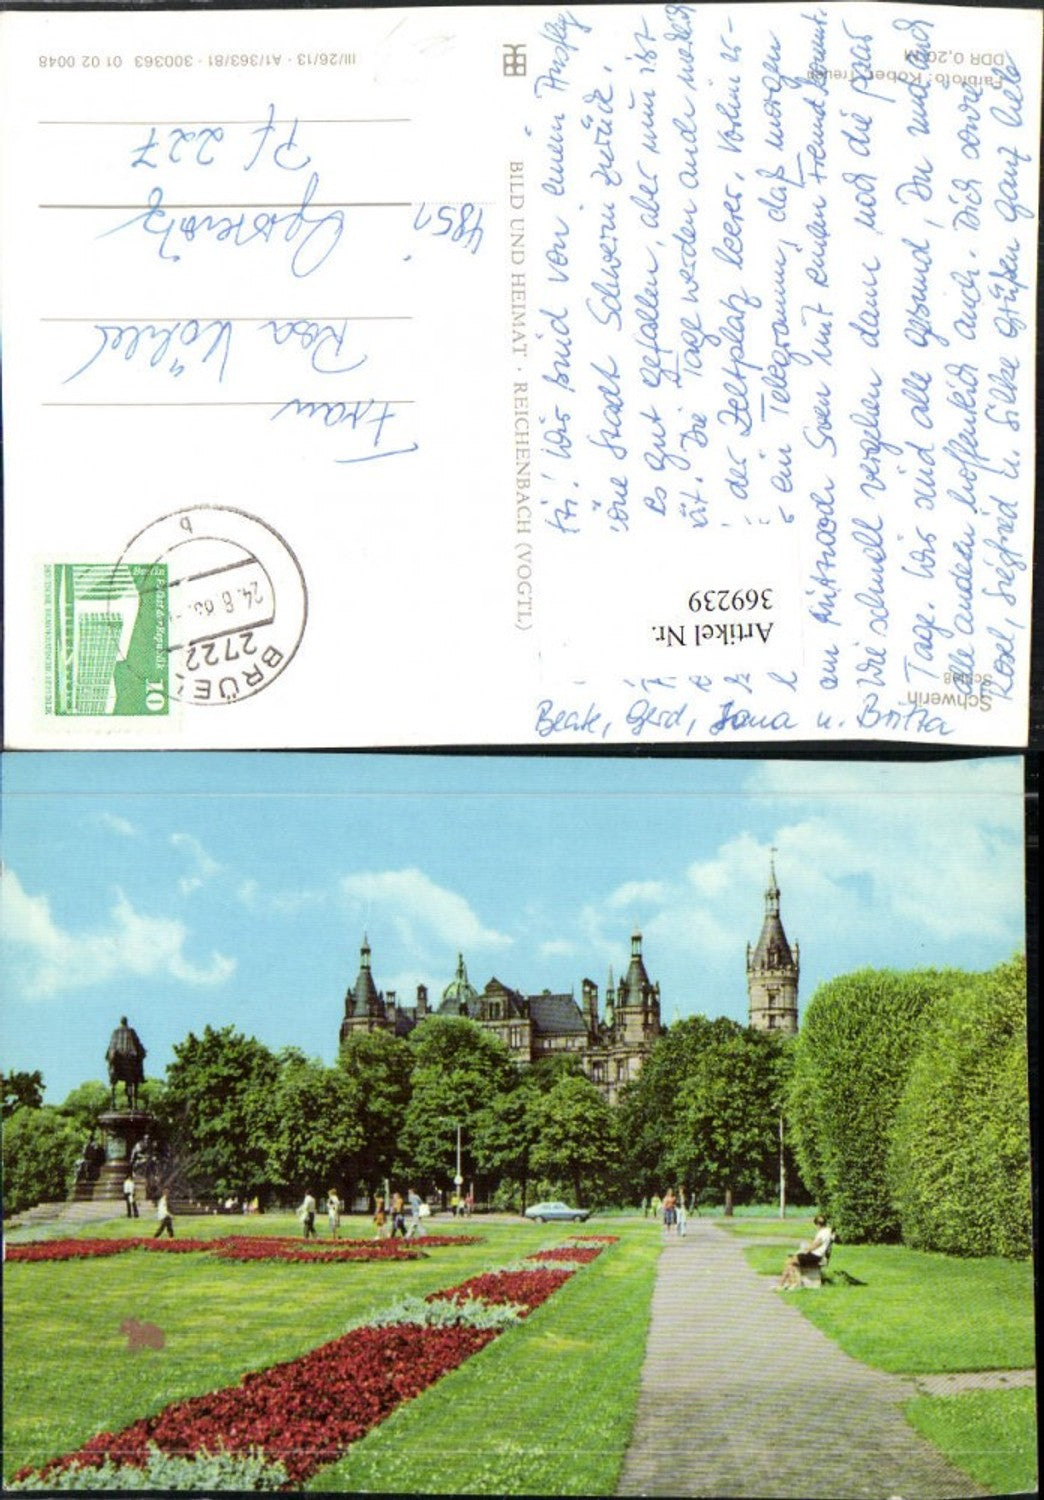 Bri! Wir sind von einem Ausflug
in die Stadt Schwerin zurück.
es gut gefallen, aber nun ist
Die Tage werden auch merklich
der Zeltplatz leerer. Vorhin
ein Telegramm, daß morgen
am Mittwoch Sven mit einem Freund kommt.
Wie schnell vergehen dann noch die paar
Tage. Wir sind alle gesund, Du und
alle anderen hoffentlich auch. Dich sowie
Rosel, Siegfried u. Silke grüßen ganz liebe
Beate, Gerd, Jana u. Britta
Artikel Nr.
369239
Schwerin
Schloß
Farbfoto: Kober, Treuen
DDR 0,20 M
BILD UND HEIMAT · REICHENBACH (VOGTL)
III/26/13 · A1/363/81 · 300363 01 02 0048
Frau
Rosa Köhler
4851
Pf 227
2722
BRÜE
24.8.
b
Berlin Palast der Republik
10
DEUTSCHE DEMOKRATISCHE REPUBLIK